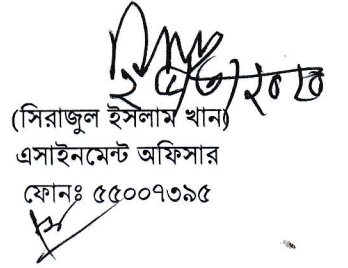 (সিরাজুল ইসলাম খান)
এসাইনমেন্ট অফিসার
ফোনঃ ৫৫০০৭৩৯৫